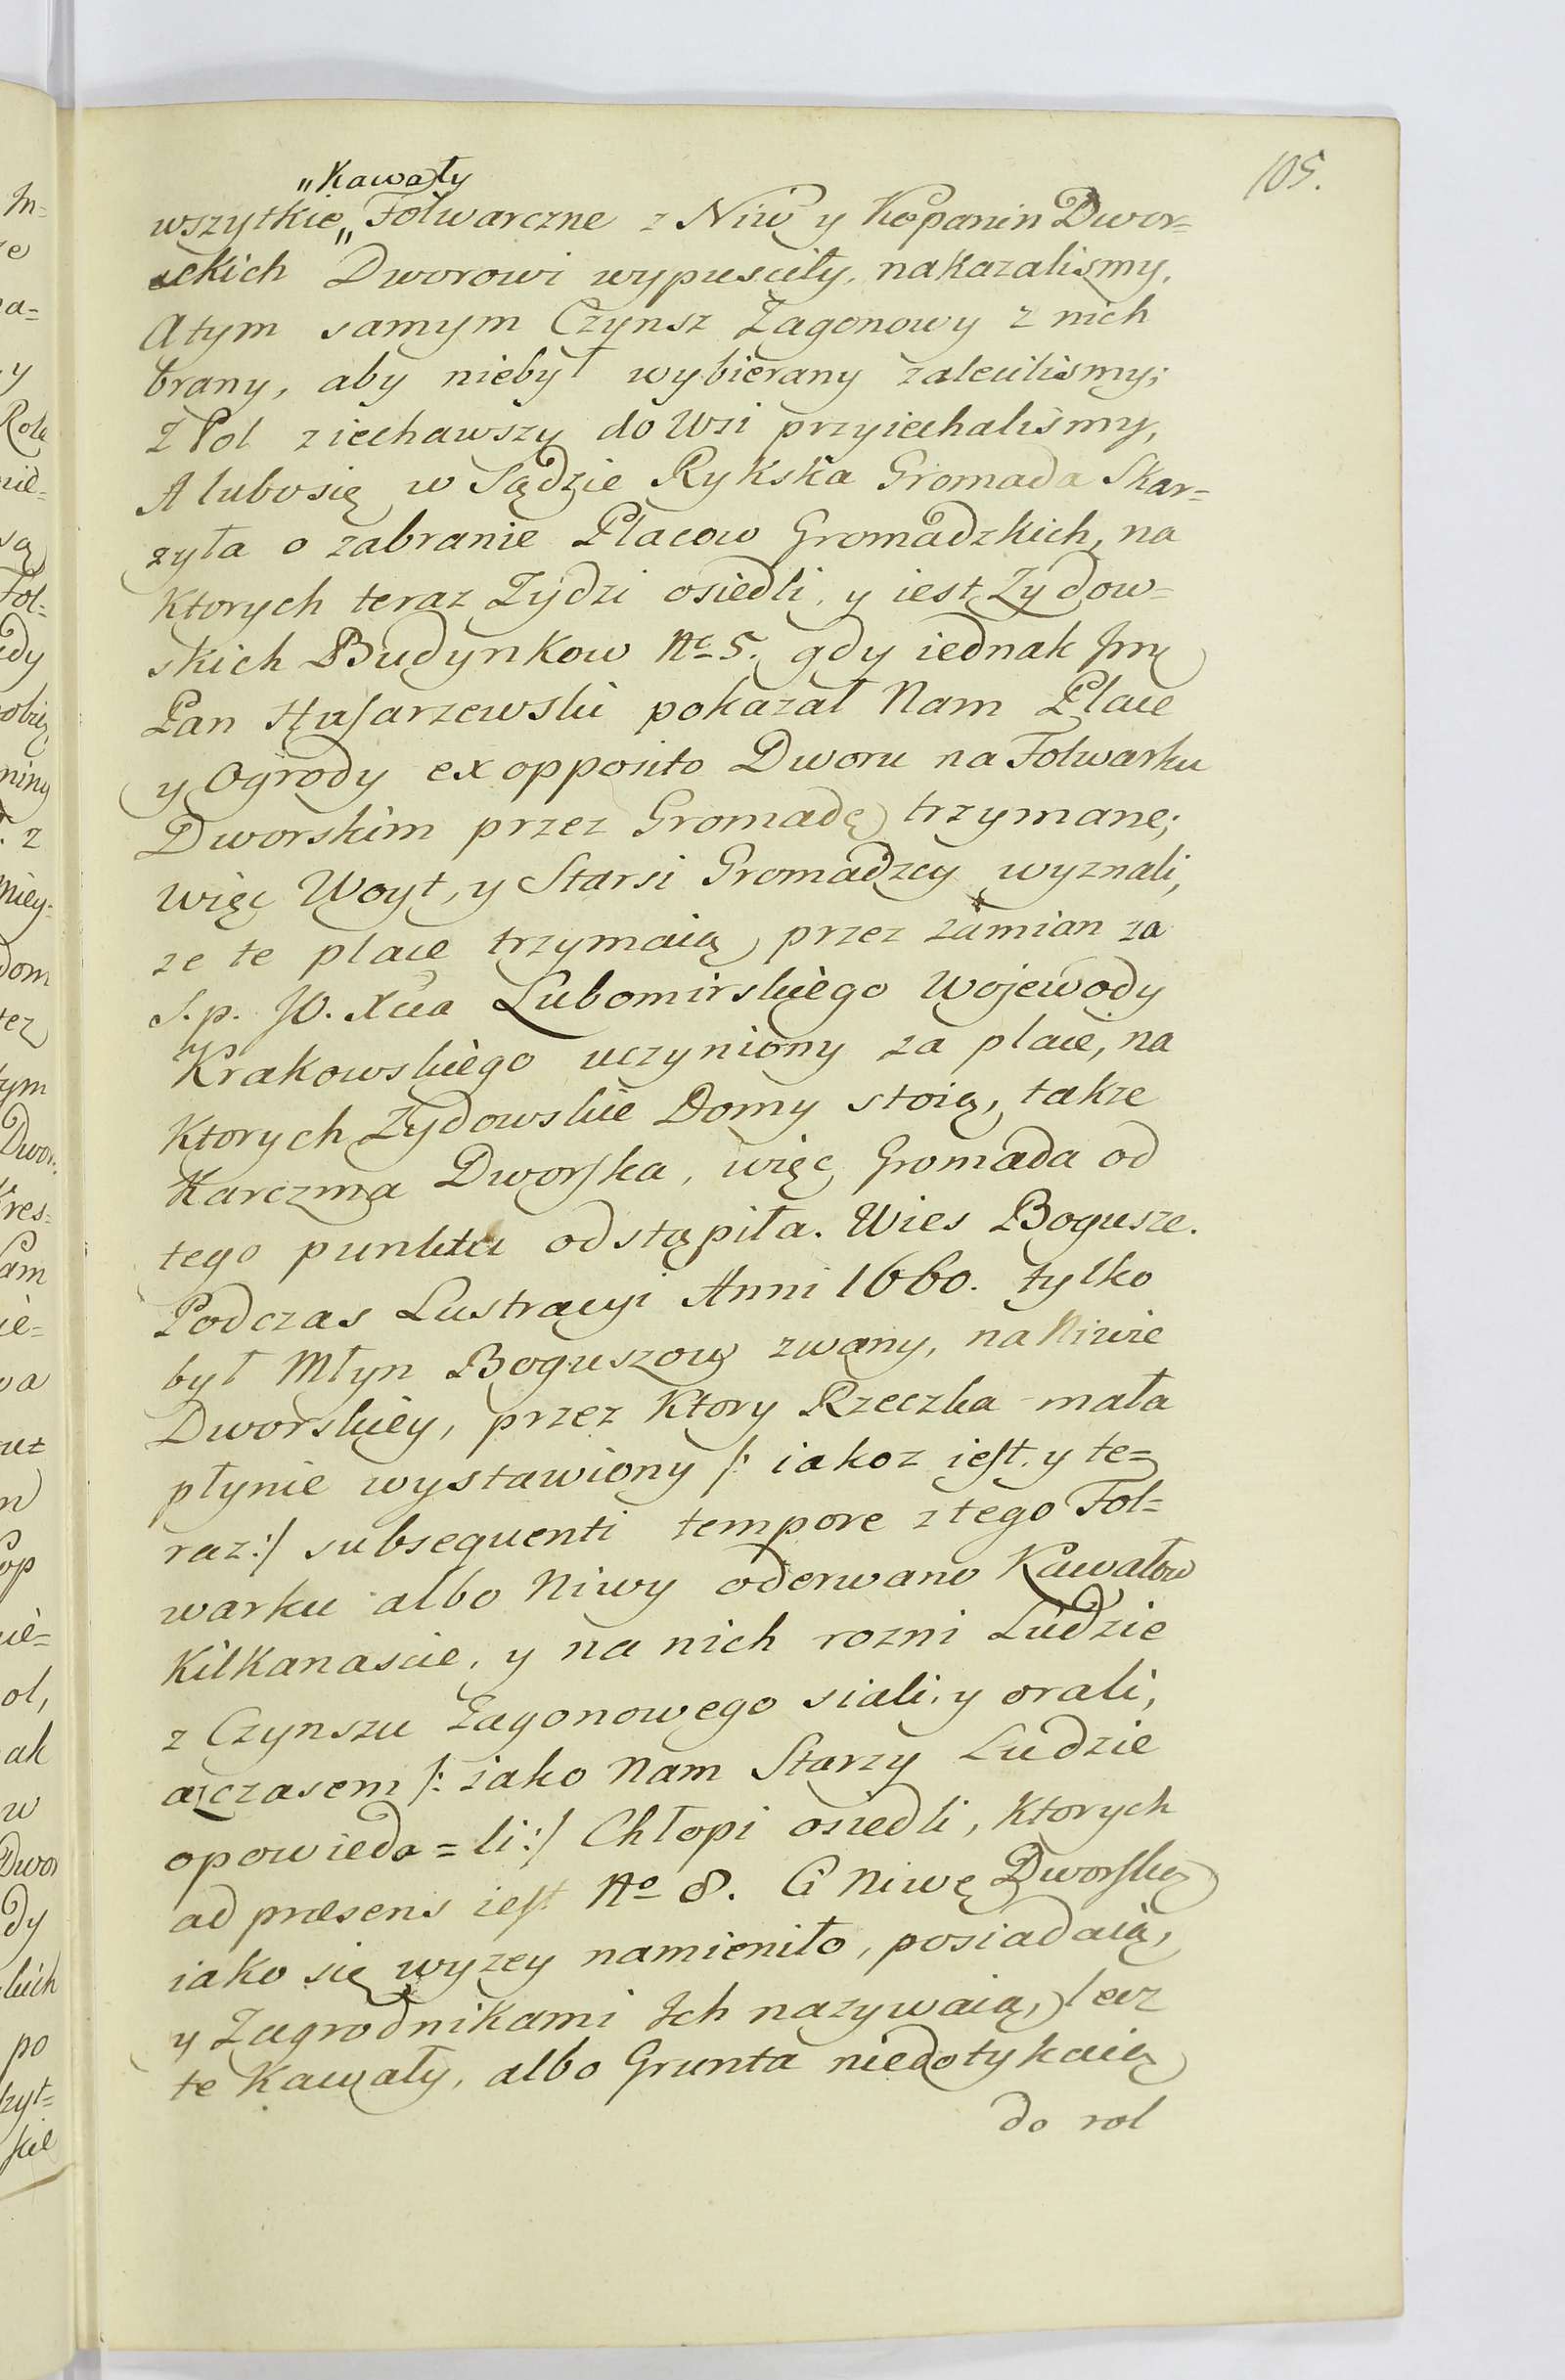 105.
„Kawały
wszytkie„ Folwarczne z Niw y Kopanin Dwor=
ckich Dworowi wypusciły, nakazalismy,
Atym samym Czynsz Zagonowy z nich
brany, aby niebył wybierany zalecilismy;
Z Pol ziechawszy do Wsi przyiechalismy,
A lubosię w Sądzie Rykska Gromada Skar=
zyła o zabranie Placow Gromadzkich, na
Ktorych teraz Zydzi osiedli, y iest Zydow=
skich Budynkow No 5. gdy iednak Jmć
Pan Husarzewski pokazał Nam Place
y Ogrody ex opposito Dworu na Folwarku
Dworskim przez Gromadę trzymane;
więc Woyt, y Starsi Gromadzcy wyznali,
ze te place trzymaią, przez zamian za
S. p. JO. Xcia Lubomirskiego Wojewody
Krakowskiego uczyniony za place, na
Ktorych Zydowskie Domy stoią, takze
Karczma Dworska, więc Gromada od
tego punktu odstąpiła. Wies Bogusze.
Podczas Lustracyi Anni 1660. tylko
był Młyn Boguszow zwany, na Niwie
Dworskiey, przez Ktory Rzeczka mała
płynie wystawiony /: iakoz iest y te=
raz:/ subsequenti tempore z tego Fol=
warku albo Niwy oderwano Kawałow
Kilkanascie, y na nich rozni Ludzie
z Czynszu Zagonowego siali, y orali,
azczasem /: iako Nam Starzy Ludzie
opowieda=li:/ Chłopi osiedli, Ktorych
ad præsens iest No 8. Ci Niwę Dworską
iako się wyzey namieniło, posiadaią,
y Zagrodnikami Ich nazywaią, lecz
te Kawały, albo Grunta niedotykaią
do rol